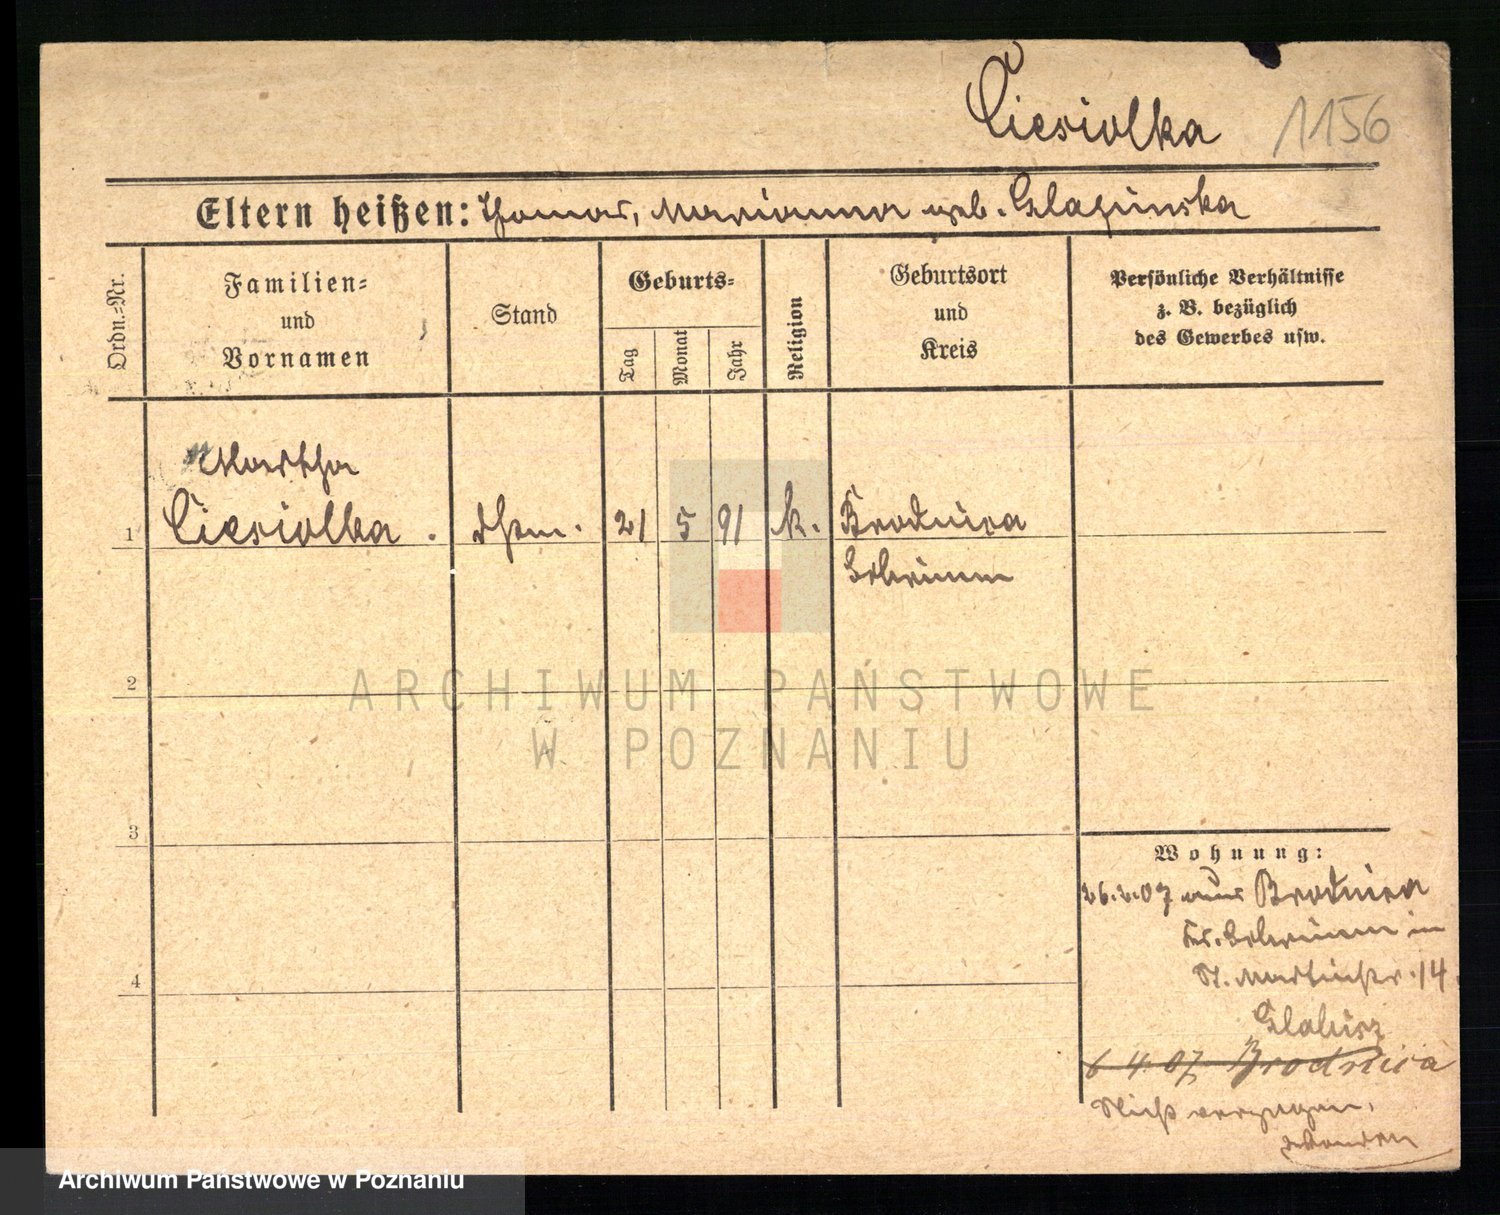 Ciesiolka 1156
Eltern heißen: Thomas, Marianna geb. Glapinska
Ordn.-Nr.
Familien-
und
Vornamen
Stand
Geburts-
Tag
Monat
Jahr
Religion
Geburtsort
und
Kreis
Persönliche Verhältnisse
z. B. bezüglich
des Gewerbes usw.
Martha
1 Ciesiolka. 21 5 91 k. Brodnica
Schrimm
2
ARCHIWUM PAŃSTWOWE
W POZNANIU
3
Wohnung:
26.2.07 aus Brodnica
Kr. Schrimm in
St. Martinstr. 14.
4
6 4. 07. Brodnica
Nicht verzogen,
Archiwum Państwowe w Poznaniu